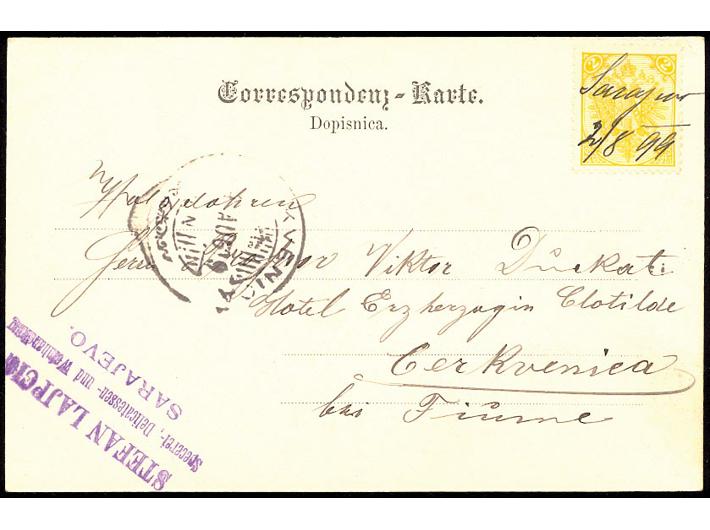 Correspondenz-Karte.
Dopisnica.
2 2
Sarajevo
2/8 99
Hochwohlgeboren
Herrn
Viktor Dückati
Hotel Erzherzogin Clotilde
Cerkvenica
bei Fiume
STEFAN LAJPCIG
Specerei-, Delicatessen- und
SARAJEVO.